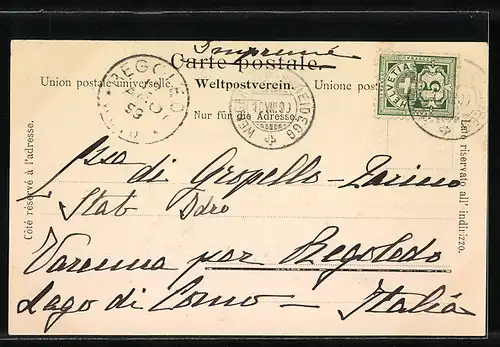 Imprimé
Carte postale.
Union postale universelle. Weltpostverein. Unione postale
Nur für die Adresse.
REGOLEDO
99
HELVETIA
5
Côté réservé à l'adresse.
Lato riservato all' indirizzo.
di Gropello-Tarino
Stab Idro
Varenna per Regoledo
Lago di Como - Italia